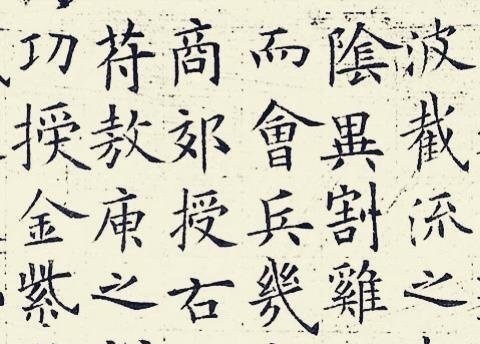 波截流之
陰異割雞
而會兵幾
商郊授右
苻敖庾之
功金紫